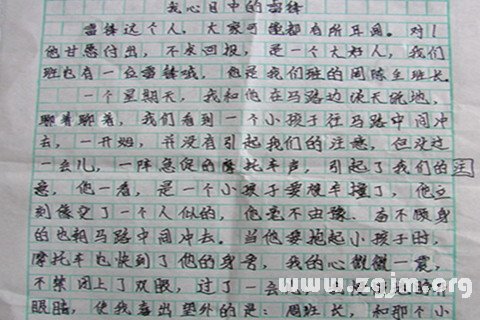 我心目中的雷锋
雷锋这个人，大家可能都有所耳闻。对！
他甘愿付出，不求回报，是一个大好人，我们
班也有一位雷锋哦，他是我们班的周陈全班长。
一个星期天，我和他在马路边谈天说地，
聊着聊着，我们看到一个小孩子往马路中间冲
去，一开始，并没有引起我们的注意，但没过
一会儿，一阵急促的摩托车声，引起了我们的注
意，他一看，是一个小孩子要被车撞了，他立
刻像变了一个人似的，他毫不由豫、奋不顾身
的也朝马路中间冲去。当他要抱起小孩子时，
摩托车也快到了他的身旁，我的心微微一震，
不禁闭上了双眼，过了一会
眼睛，使我喜出望外的是：周班长，和那个小
www.zgjm.org